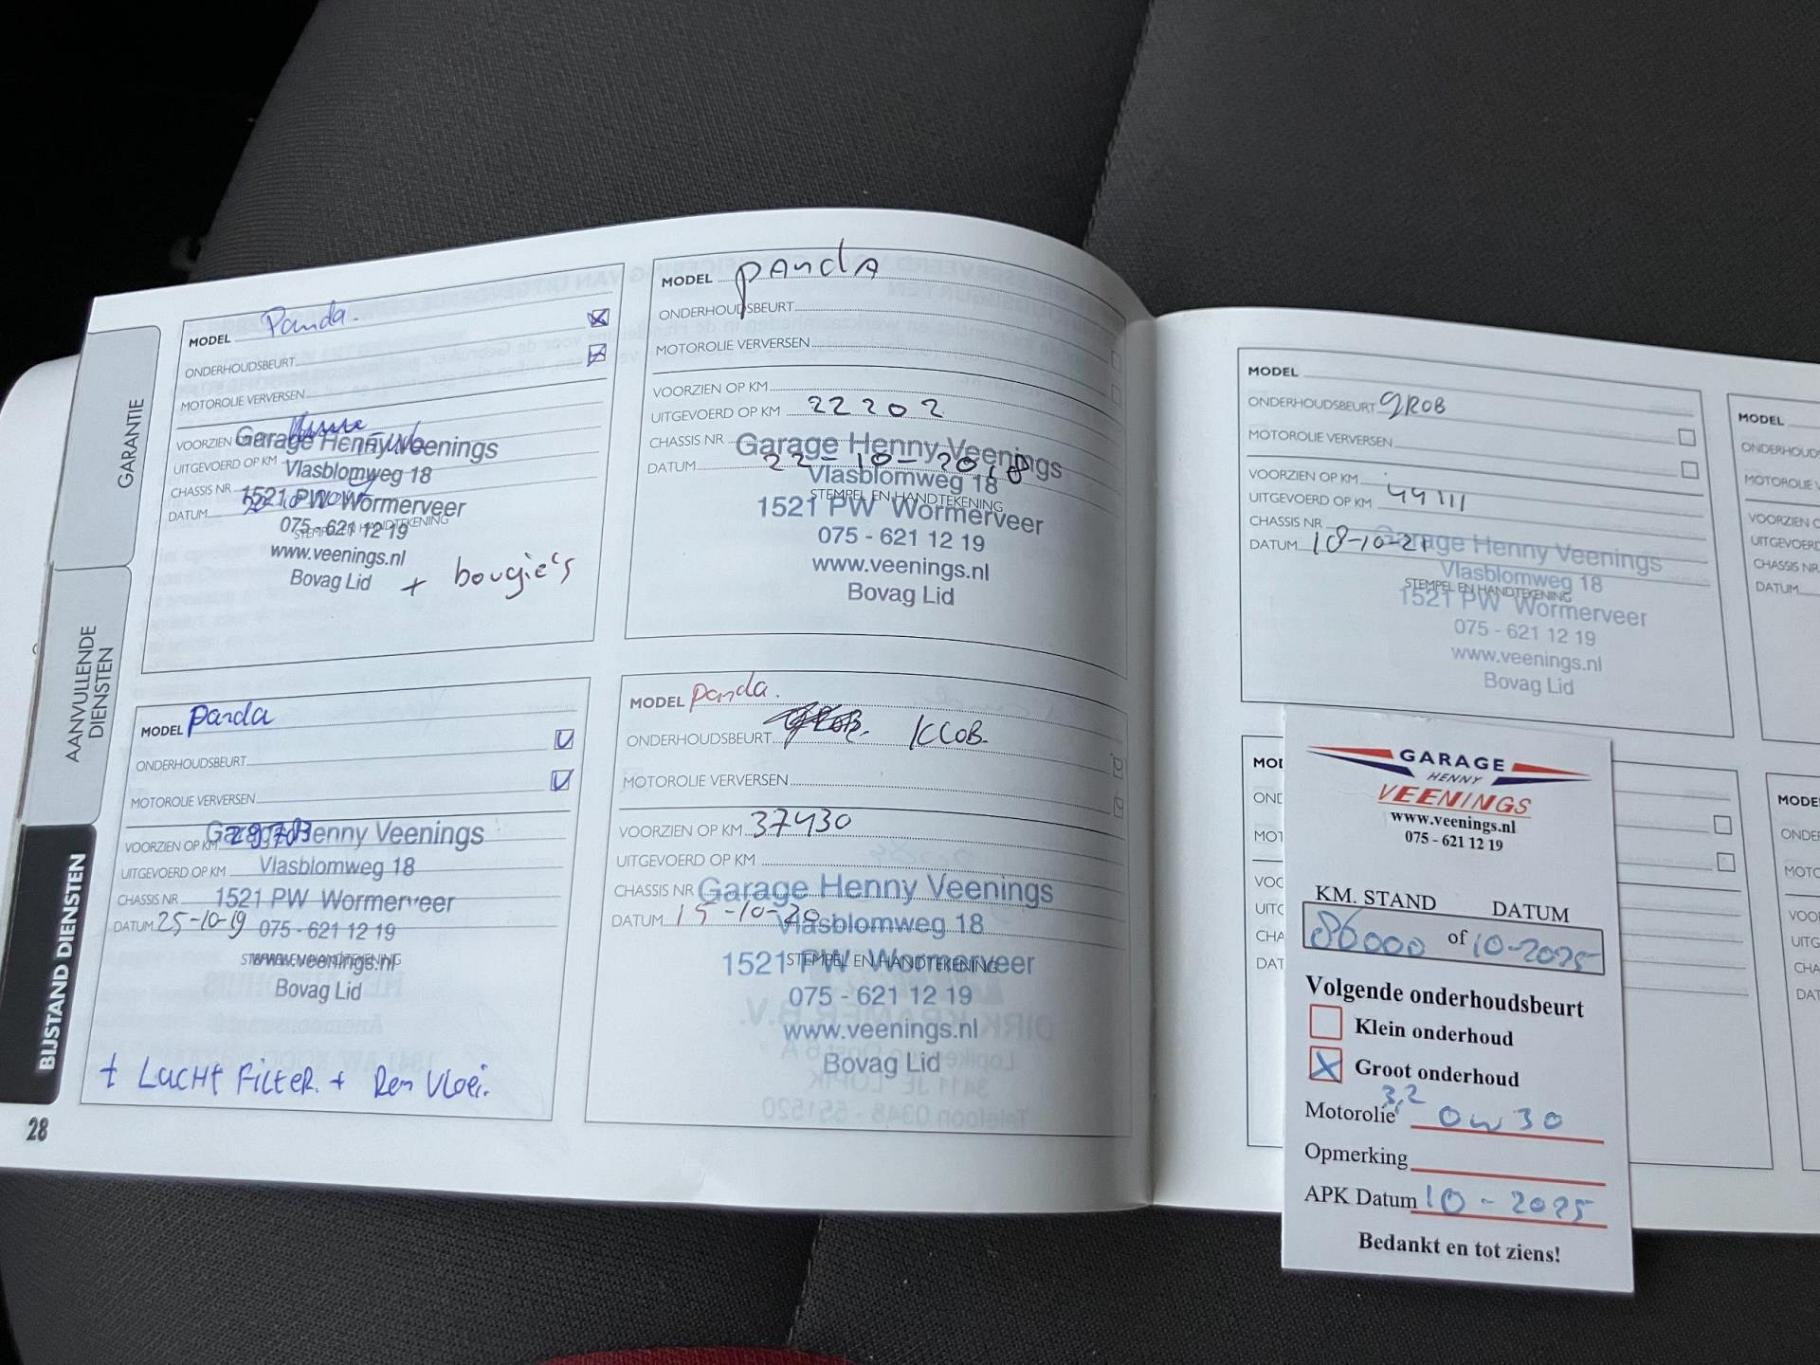 GARANTIE
AANVULLENDE
DIENSTEN
BIJSTAND DIENSTEN
28
MODEL Panda.
ONDERHOUDSBEURT
MOTOROLIE VERVERSEN
VOORZIEN
UITGEVOERD OP KM
CHASSIS NR
DATUM
Garage Henny Veenings
Vlasblomweg 18
1521 PW Wormerveer
075 - 621 12 19
www.veenings.nl
Bovag Lid
+ bougie's
MODEL panda
ONDERHOUDSBEURT
MOTOROLIE VERVERSEN
VOORZIEN OP KM
UITGEVOERD OP KM 22202
CHASSIS NR
DATUM 22-10-2018
Garage Henny Veenings
Vlasblomweg 18
STEMPEL EN HANDTEKENING
1521 PW Wormerveer
075 - 621 12 19
www.veenings.nl
Bovag Lid
MODEL panda
ONDERHOUDSBEURT
MOTOROLIE VERVERSEN
VOORZIEN OP KM 29703
UITGEVOERD OP KM
CHASSIS NR
DATUM 25-10-19
Garage Henny Veenings
Vlasblomweg 18
1521 PW Wormerveer
075 - 621 12 19
www.veenings.nl
Bovag Lid
+ LUCHT FILTER. + Rem Vloei.
MODEL panda.
ONDERHOUDSBEURT KLOB.
MOTOROLIE VERVERSEN
VOORZIEN OP KM 37430
UITGEVOERD OP KM
CHASSIS NR
DATUM 15-10-20
Garage Henny Veenings
Vlasblomweg 18
STEMPEL EN HANDTEKENING
1521 PW Wormerveer
075 - 621 12 19
www.veenings.nl
Bovag Lid
MODEL
ONDERHOUDSBEURT gROB
MOTOROLIE VERVERSEN
VOORZIEN OP KM
UITGEVOERD OP KM 44111
CHASSIS NR
DATUM 18-10-21
Garage Henny Veenings
Vlasblomweg 18
STEMPEL EN HANDTEKENING
1521 PW Wormerveer
075 - 621 12 19
www.veenings.nl
Bovag Lid
MODEL
DATUM
GARAGE
HENNY
VEENINGS
www.veenings.nl
075 - 621 12 19
KM. STAND DATUM
86000 of 10-2025
Volgende onderhoudsbeurt
Klein onderhoud
Groot onderhoud
3,2
Motorolie 0w30
Opmerking
APK Datum 10 - 2025
Bedankt en tot ziens!